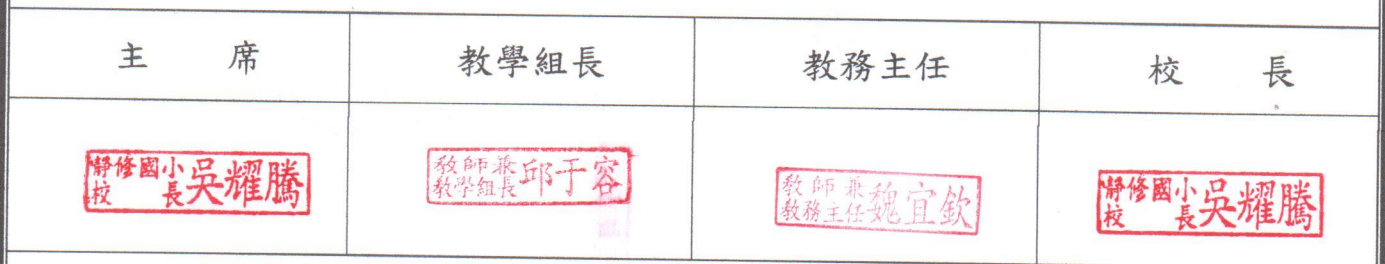 主 席 教學組長 教務主任 校 長
靜修國小校長 吳耀騰
教師兼教學組長 邱于容
教師兼教務主任 魏宜欽
靜修國小校長 吳耀騰